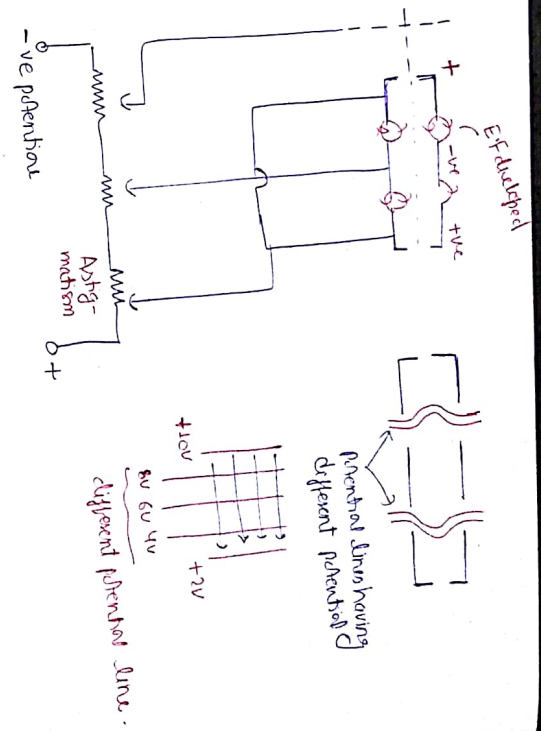 +
E.F developed
-ve
+ve
-ve potential
Astig-
matism
+
potential lines having
different potential
+10V
8V 6V 4V
+2V
different potential line.